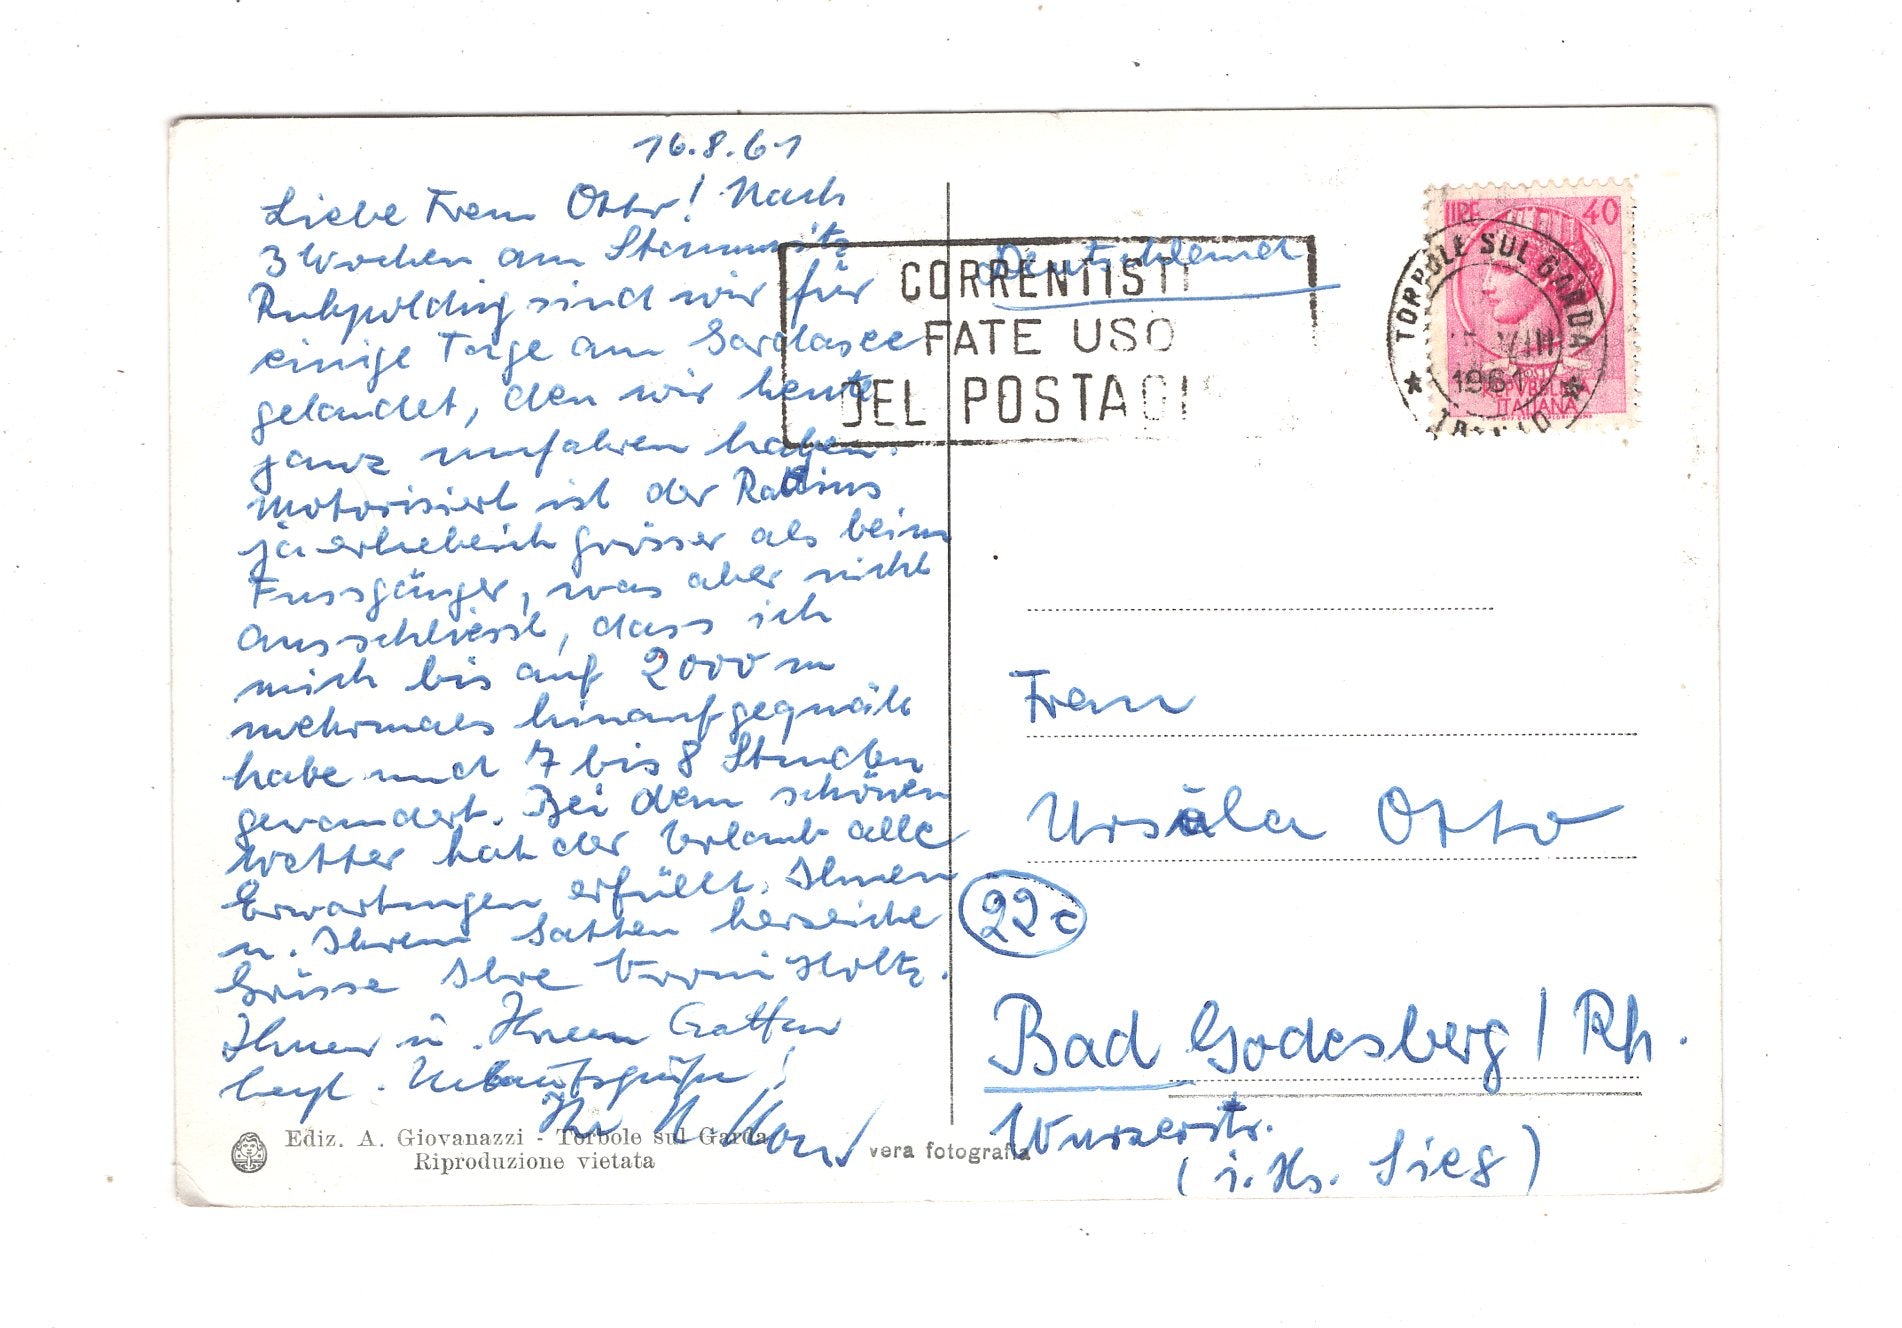 16.8.61
Liebe Frau Otto! Nach
3 Wochen am Stammsitz
Ruhpolding sind wir für
einige Tage am Gardasee
gelandet, den wir heute
ganz umfahren haben.
Motorisiert ist der Radius
ja erheblich grösser als beim
Fussgänger, was aber nicht
ausschliesst, dass ich
mich bis auf 2000 m
mehrmals hinaufgequält
habe und 7 bis 8 Stunden
gewandert. Bei dem schönen
Wetter hat der Urlaub alle
Erwartungen erfüllt. Ihnen
u. Ihrem Gatten herzliche
Grüsse Ihre Vroni Holtz.
Ihnen u. Ihrem Gatten
herzl. Urlaubsgrüße!
Ihr
Ediz. A. Giovanazzi - Torbole sul Garda
Riproduzione vietata
vera fotografia
CORRENTISTI
FATE USO
DEL POSTAGI
Deutschland
LIRE 40
TORBOLE SUL GARDA
VIII
1961
REPUBBLICA
ITALIANA
Frau
Ursula Otto
22c
Bad Godesberg / Rh.
Wurzerstr.
(i. Hs. Sieg)